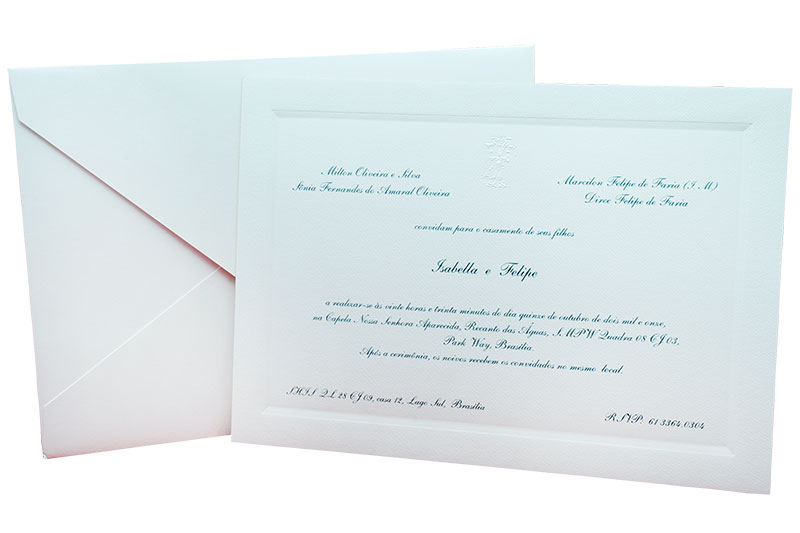 Milton Oliveira e Silva
Sônia Fernandes do Amaral Oliveira
Marcilon Felipe de Faria (I.M)
Dirce Felipe de Faria
convidam para o casamento de seus filhos
Isabella e Felipe
a realizar-se às vinte horas e trinta minutos do dia quinze de outubro de dois mil e onze,
na Capela Nossa Senhora Aparecida, Recanto das Águas, SMPW Quadra 08 CJ 03,
Park Way, Brasília
Após a cerimônia, os noivos recebem os convidados no mesmo local.
SHIS QL 28 CJ 09, casa 12, Lago Sul, Brasília
RSVP: 61 3364.0304